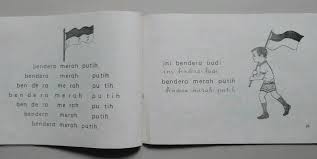 bendera merah putih
bendera merah putih
ben de ra me rah pu tih
b e n d e r a m e r a h p u t i h
ben de ra me rah pu tih
bendera merah putih
bendera merah putih
ini bendera budi
ini bendera budi
bendera merah putih
bendera merah putih